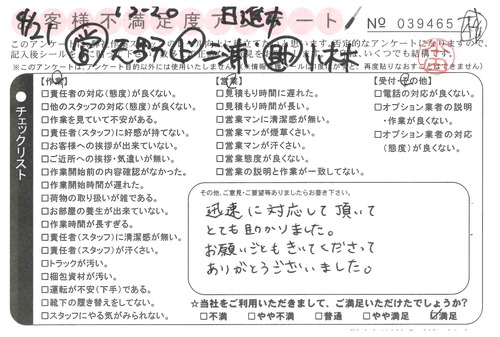 客様不満足度アンケート
№ 039465
8/21 12-20
【作業】
□責任者の対応(態度)が良くない。
□他のスタッフの対応(態度)が良くない。
□作業を見ていて不安がある。
□責任者(スタッフ)に好感が持てない。
□お客様への挨拶が出来ていない。
□ご近所への挨拶・気遣いが無い。
□作業開始前の内容確認がなかった。
□作業開始時間が遅れた。
□荷物の取り扱いが雑である。
□お部屋の養生が出来ていない。
□作業時間が長すぎる。
□責任者(スタッフ)に清潔感が無い。
□責任者(スタッフ)が汗くさい。
□トラックが汚い。
□梱包資材が汚い。
□運転が不安(下手)である。
□靴下の履き替えをしてない。
□スタッフにやる気がみられない。
●チェックリスト
□見積もり時間に遅れた。
□見積もり時間が長い。
□営業マンに清潔感が無い。
□営業マンが煙草くさい。
□営業マンが汗くさい。
□営業態度が良くない。
□営業の説明と作業が一致してない。
【受付・その他】
□電話の対応が良くない。
□オプション業者の説明
・作業が良くない。
□オプション業者の対応
(態度)が良くない。
その他、ご意見・ご要望等ありましたらお書き下さい。
迅速に対応して頂いて
とても助かりました。
お願いごともきいてくださって
ありがとうございました。
☆当社をご利用いただきまして、ご満足いただけたでしょうか?
□不満 □やや不満 □普通 □やや満足 ☑満足